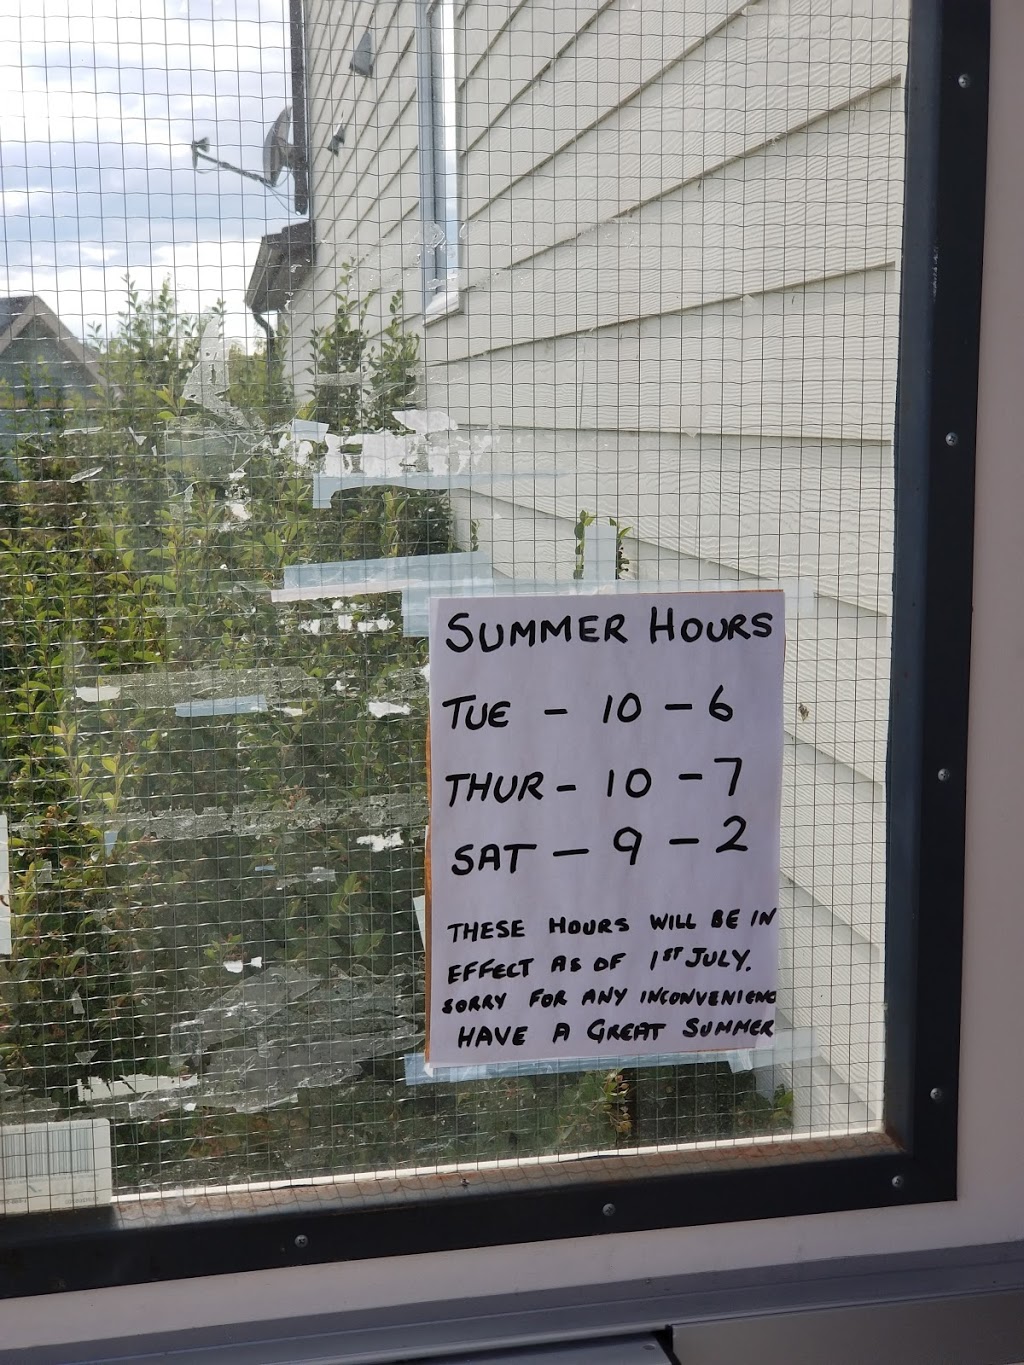 SUMMER HOURS
TUE - 10 - 6
THUR - 10 - 7
SAT - 9 - 2
THESE HOURS WILL BE IN
EFFECT AS OF 1ST JULY.
SORRY FOR ANY INCONVENIENC
HAVE A GREAT SUMMER